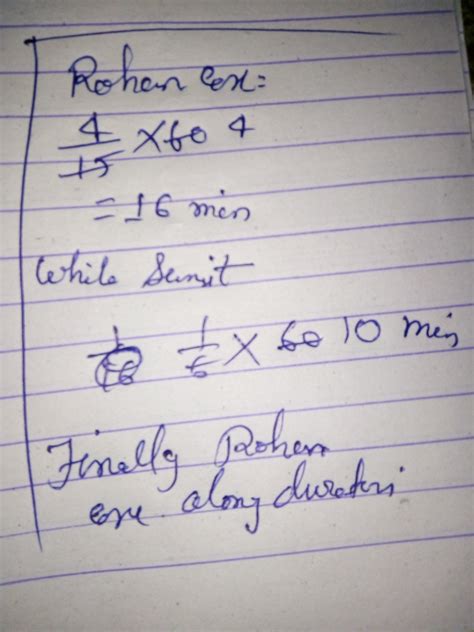 Rohan
4/15 × 60 4
= 16 min
While Sumit
1/6 × 60 10 min
Finally Rohan
along